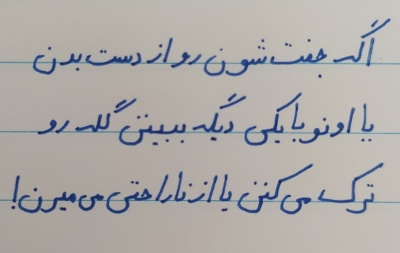 اگه جفت‌شون رو از دست بدن
یا اونو با یکی دیگه ببینن گله رو
ترک می‌کنن یا از ناراحتی می‌میرن!